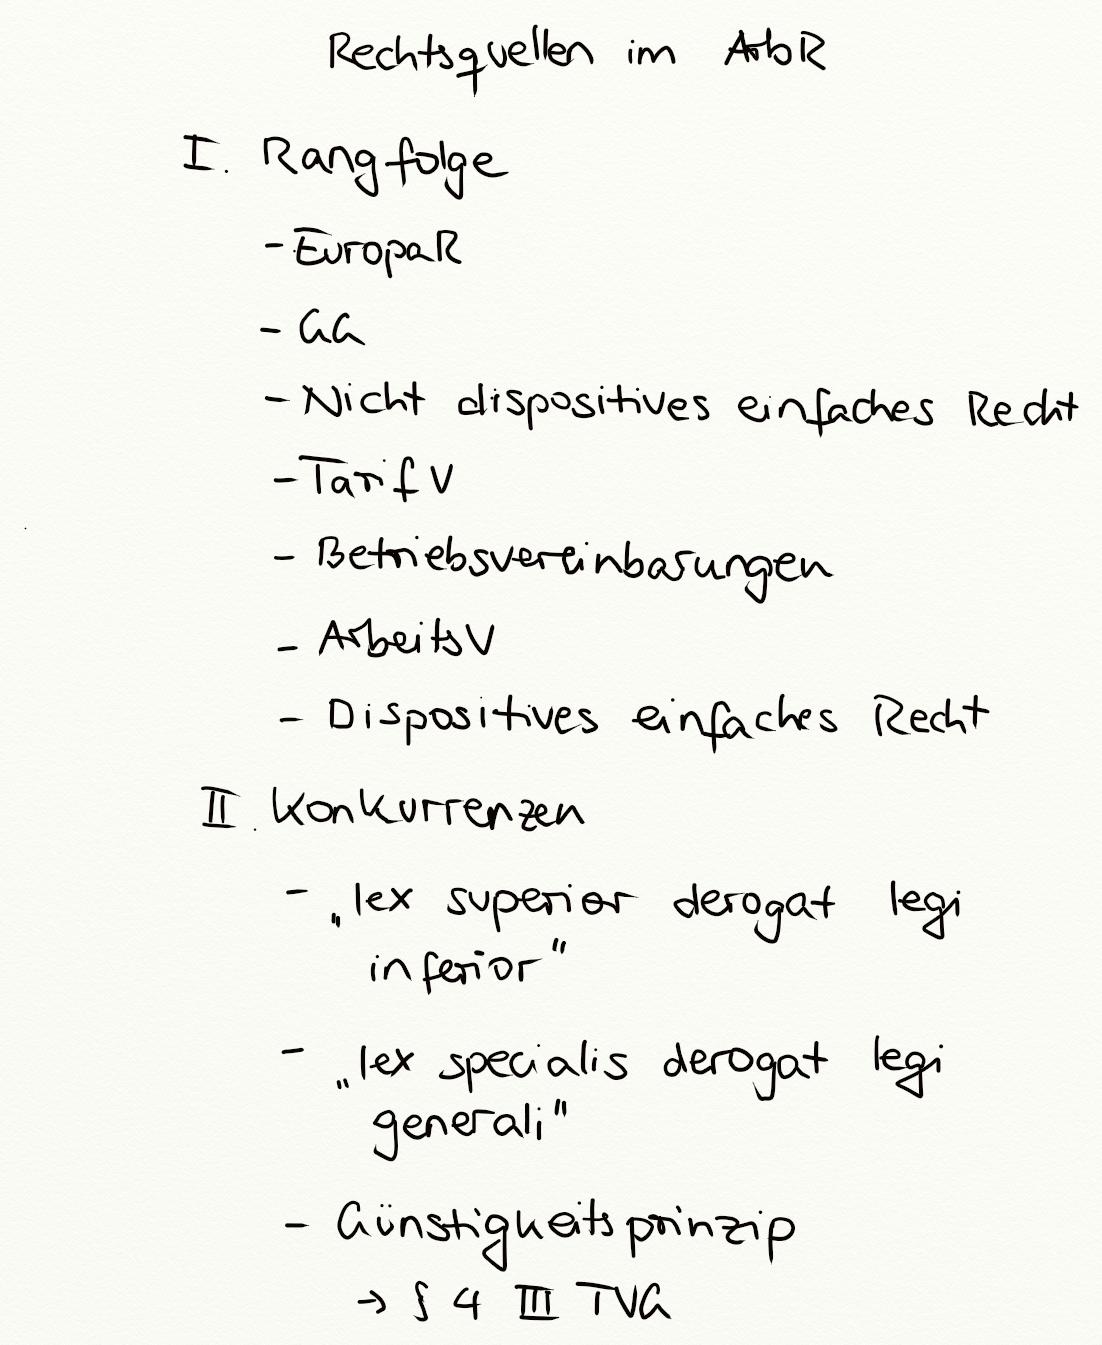 Rechtsquellen im ArbR
I. Rangfolge
- EuropaR
- GG
- Nicht dispositives einfaches Recht
- TarifV
- Betriebsvereinbarungen
- ArbeitsV
- Dispositives einfaches Recht
II. Konkurrenzen
- „lex superior derogat legi
inferior"
- „lex specialis derogat legi
generali"
- Günstigkeitsprinzip
→ § 4 III TVG